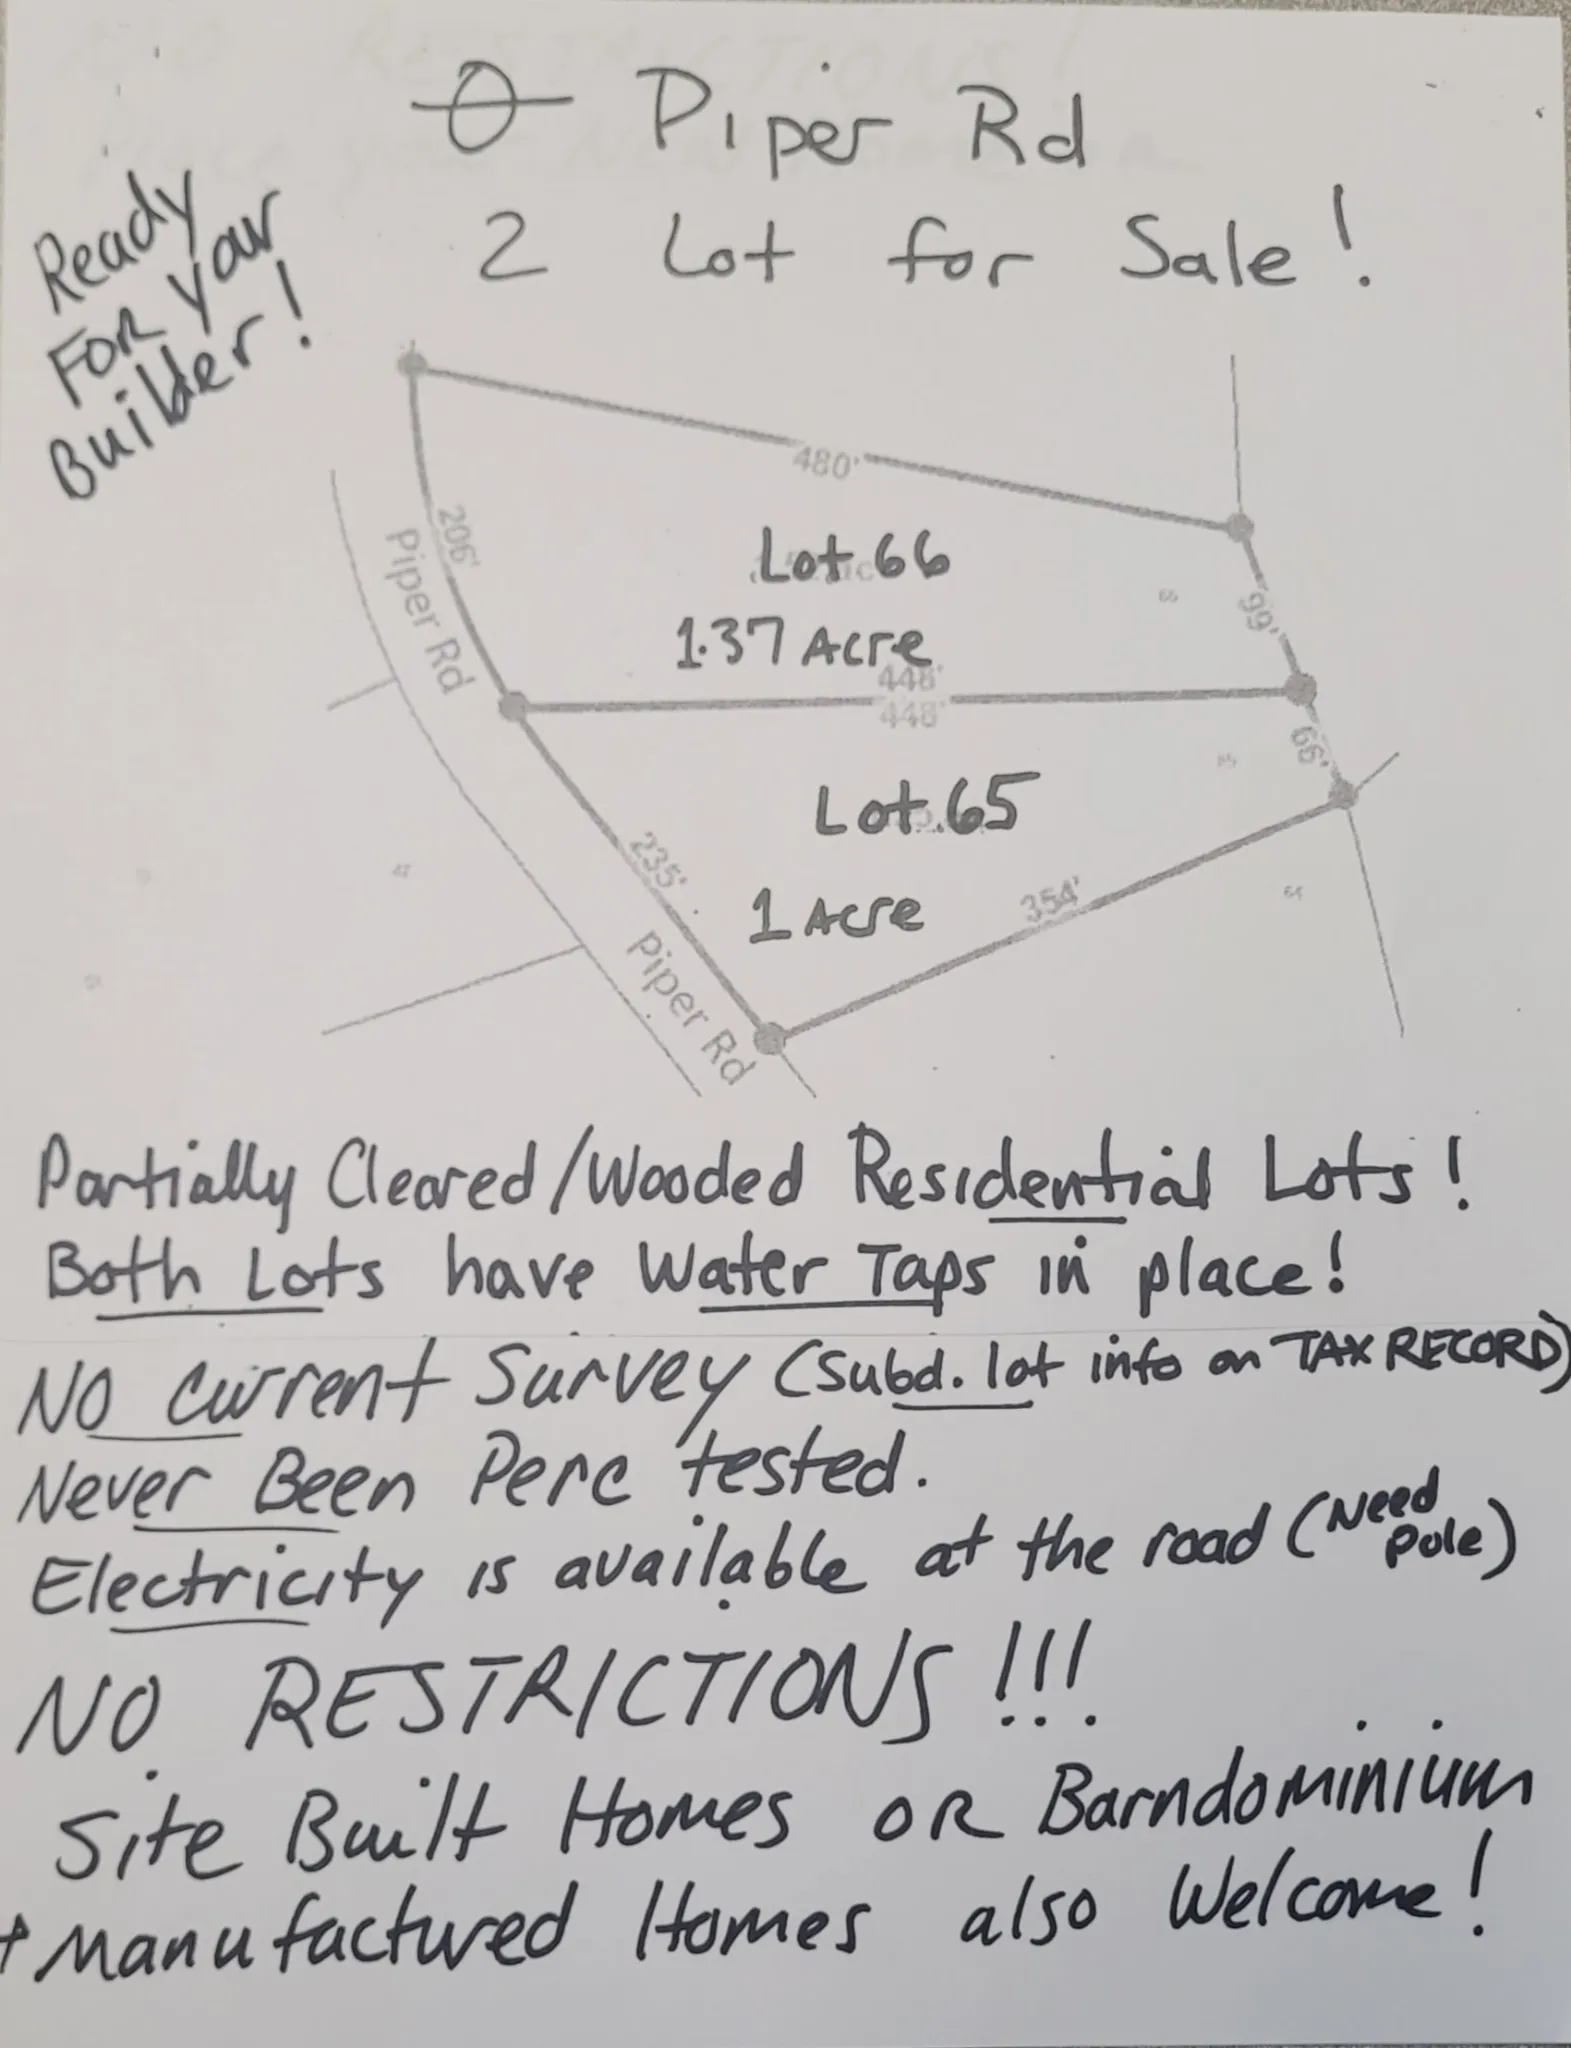 0 Piper Rd
2 Lot for Sale!
Ready
FOR your
Builder!
480'
206'
Piper Rd
Lot 66
1.37 Acre
99'
448'
448'
66'
Lot 65
1 Acre
235'
354'
Piper Rd
47
64
Partially Cleared/Wooded Residential Lots!
Both Lots have Water Taps in place!
NO current Survey (Subd. lot info on TAX RECORD)
Never Been Perc tested.
Electricity is available at the road (Need pole)
NO RESTRICTIONS!!!
Site Built Homes OR Barndominium
+ Manufactured Homes also Welcome!